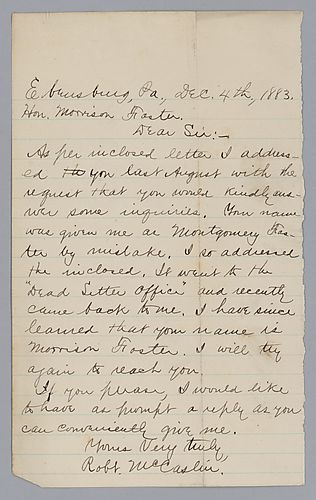 Ebensburg, Pa., Dec. 4th, 1883.
Hon. Morrison Foster,
Dear Sir:-
As per inclosed letter I address-
ed you last August with the
request that you would kindly ans-
wer some inquiries. Your name
was given me as Montgomery Fos-
ter by mistake. I so addressed
the inclosed. It went to the
"Dead Letter Office" and recently
came back to me. I have since
learned that your name is
Morrison Foster. I will try
again to reach you.
If you please, I would like
to have as prompt a reply as you
can conveniently give me.
Yours Very truly,
Robt. McCaslin.